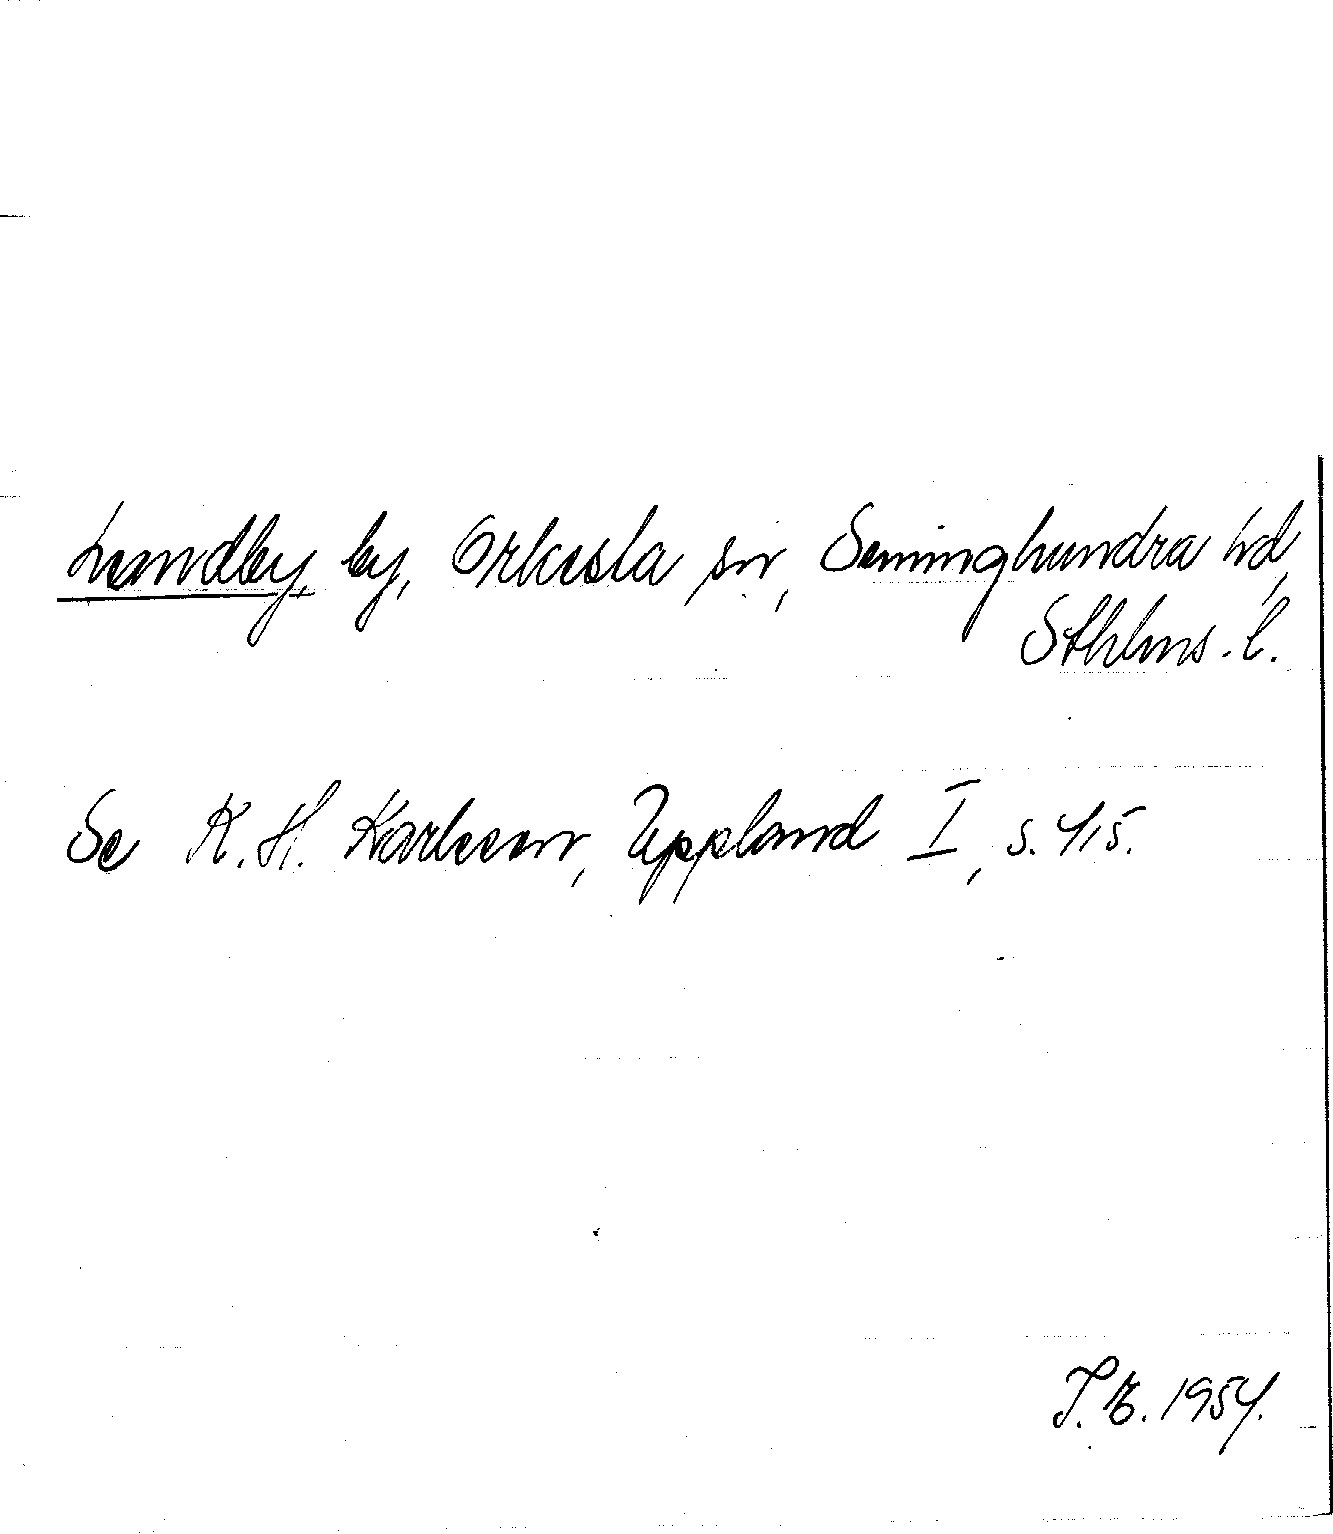 Lundby, by, Orkesta sn, Seminghundra hd,
Sthlms. l.
Se K. H. Karlsson, Uppland I, s. 45.
T. E. 1954.